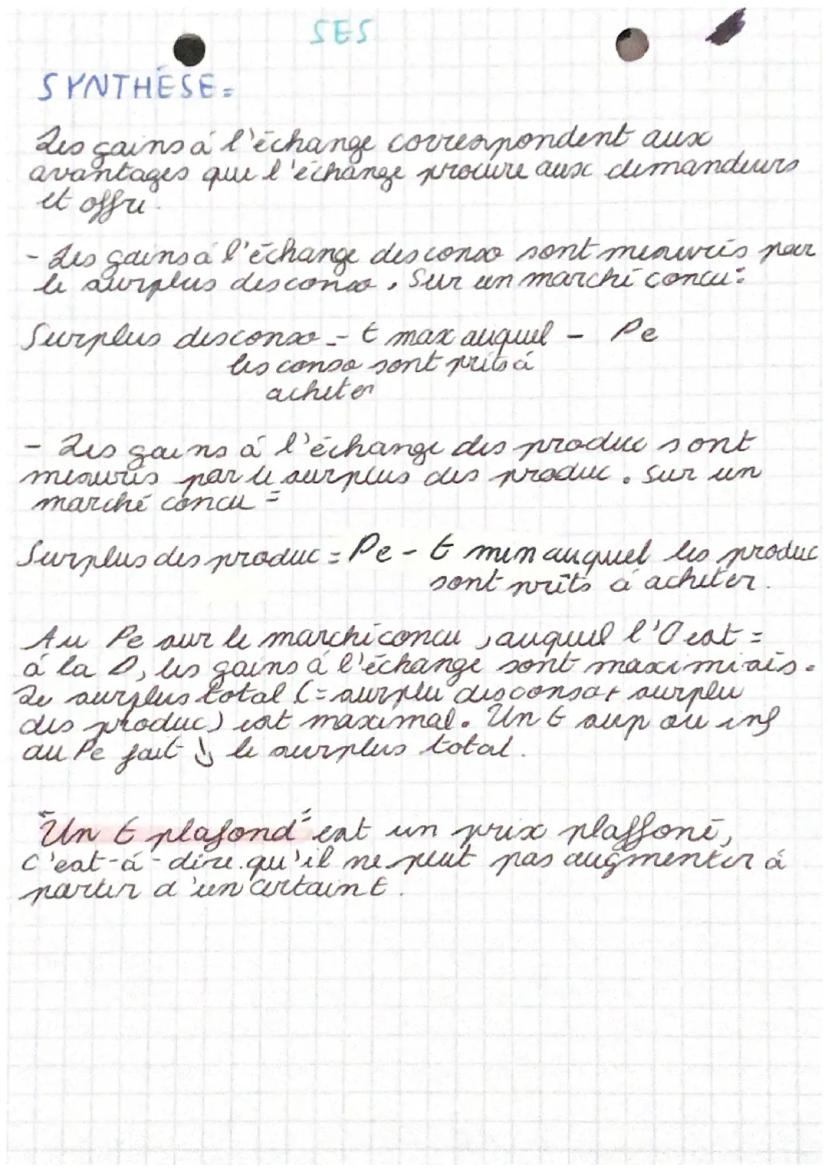 SES
SYNTHÈSE =
Les gains à l'échange correspondent aux
avantages que l'échange procure aux demandeurs
et offre.
- Les gains à l'échange des conso sont mesurés par
le surplus des conso. Sur un marché concu :
Surplus des conso = € max auquel - Pe
les conso sont prêts à
acheter
- Les gains à l'échange des produc sont
mesurés par le surplus des produc. Sur un
marché concu =
Surplus des produc = Pe - € min auquel les produc
sont prêts à acheter.
Au Pe sur le marché concu, auquel l'O est =
à la D, les gains à l'échange sont maximiais.
Le surplus total (= surplu des conso + surplu
des produc) est maximal. Un € sup ou inf
au Pe fait ↓ le surplus total.
"Un € plafond" est un prix plaffoné,
c'est-à-dire qu'il ne peut pas augmenter à
partir d'un certain €.